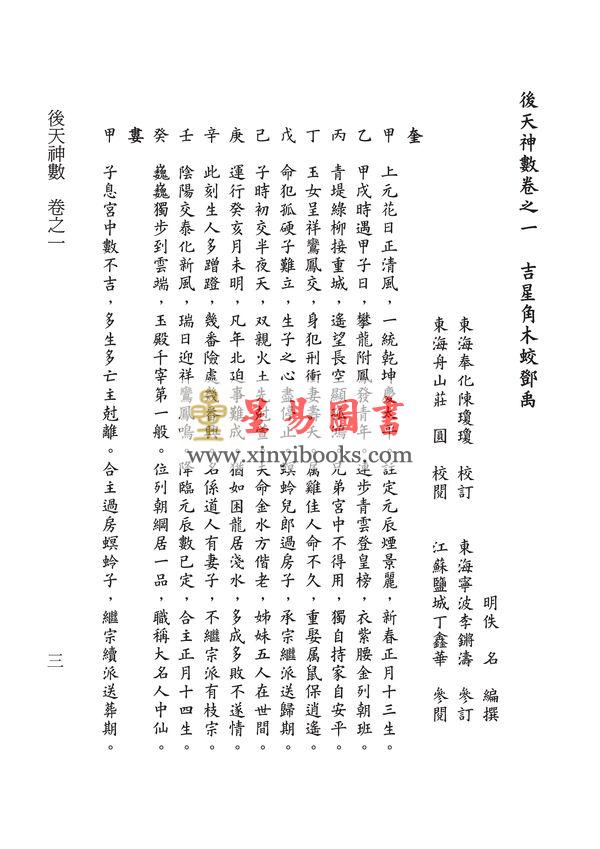 後天神數卷之一　吉星角木蛟鄧禹
東海奉化陳瓊瓊　校訂
東海舟山莊　圓　校閱
明佚　名　編撰
東海寧波李鏘濤　參訂
江蘇鹽城丁鑫華　參閱
奎
甲　上元花日正清風，一統乾坤慶太平。註定元辰煙景麗，新春正月十三生。
乙　甲戌時遇甲子日，攀龍附鳳發青年。連步青雲登皇榜，衣紫腰金列朝班。
丙　青堤綠柳接重城，遙望長空顯 兄弟宮中不得用，獨自持家自安平。
丁　玉女呈祥鸞鳳交，身犯刑衝妻壽夭。属雞佳人命不久，重娶属鼠保逍遙。
戊　命犯孤硬子難立，生子之心盡停止。螟蛉兒郎過房子，承宗繼派送歸期。
己　子時初交半夜天，双親火土先 夫命金水方偕老，姊妹五人在世間。
庚　運行癸亥月未明，凡年北迫事難成。猶如困龍居淺水，多成多敗不遂情。
辛　此刻生人多蹭蹬，幾番險處幾番 名係道人有妻子，不繼宗派有枝宗。
壬　陰陽交泰化新風，瑞日迎祥鸞鳳鳴。降臨元辰數已定，合主正月十四生。
癸　巍巍獨步到雲端，玉殿千宰第一般。位列朝綱居一品，職稱大名人中仙。
婁
甲　子息宮中數不吉，多生多亡主尅離。合主過房螟蛉子，繼宗續派送葬期。
後天神數　卷之一
三
星易圖書
www.xinyibooks.com